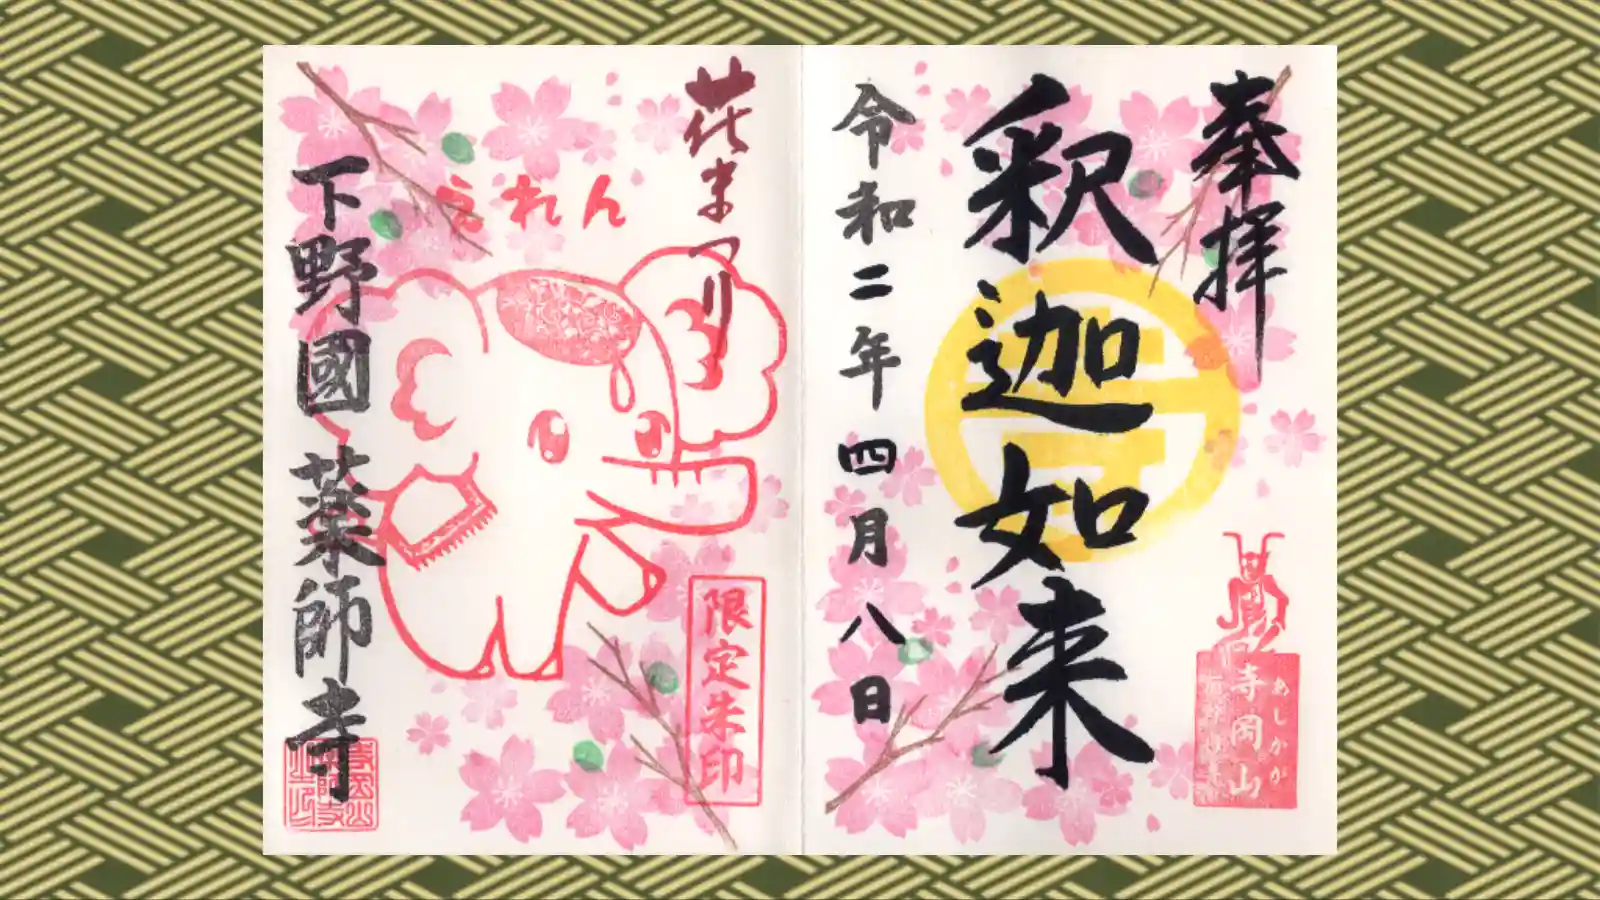 奉拝
釈迦如来
令和二年四月八日
あしかが
寺岡山
花まつり
えれん
限定朱印
下野國薬師寺